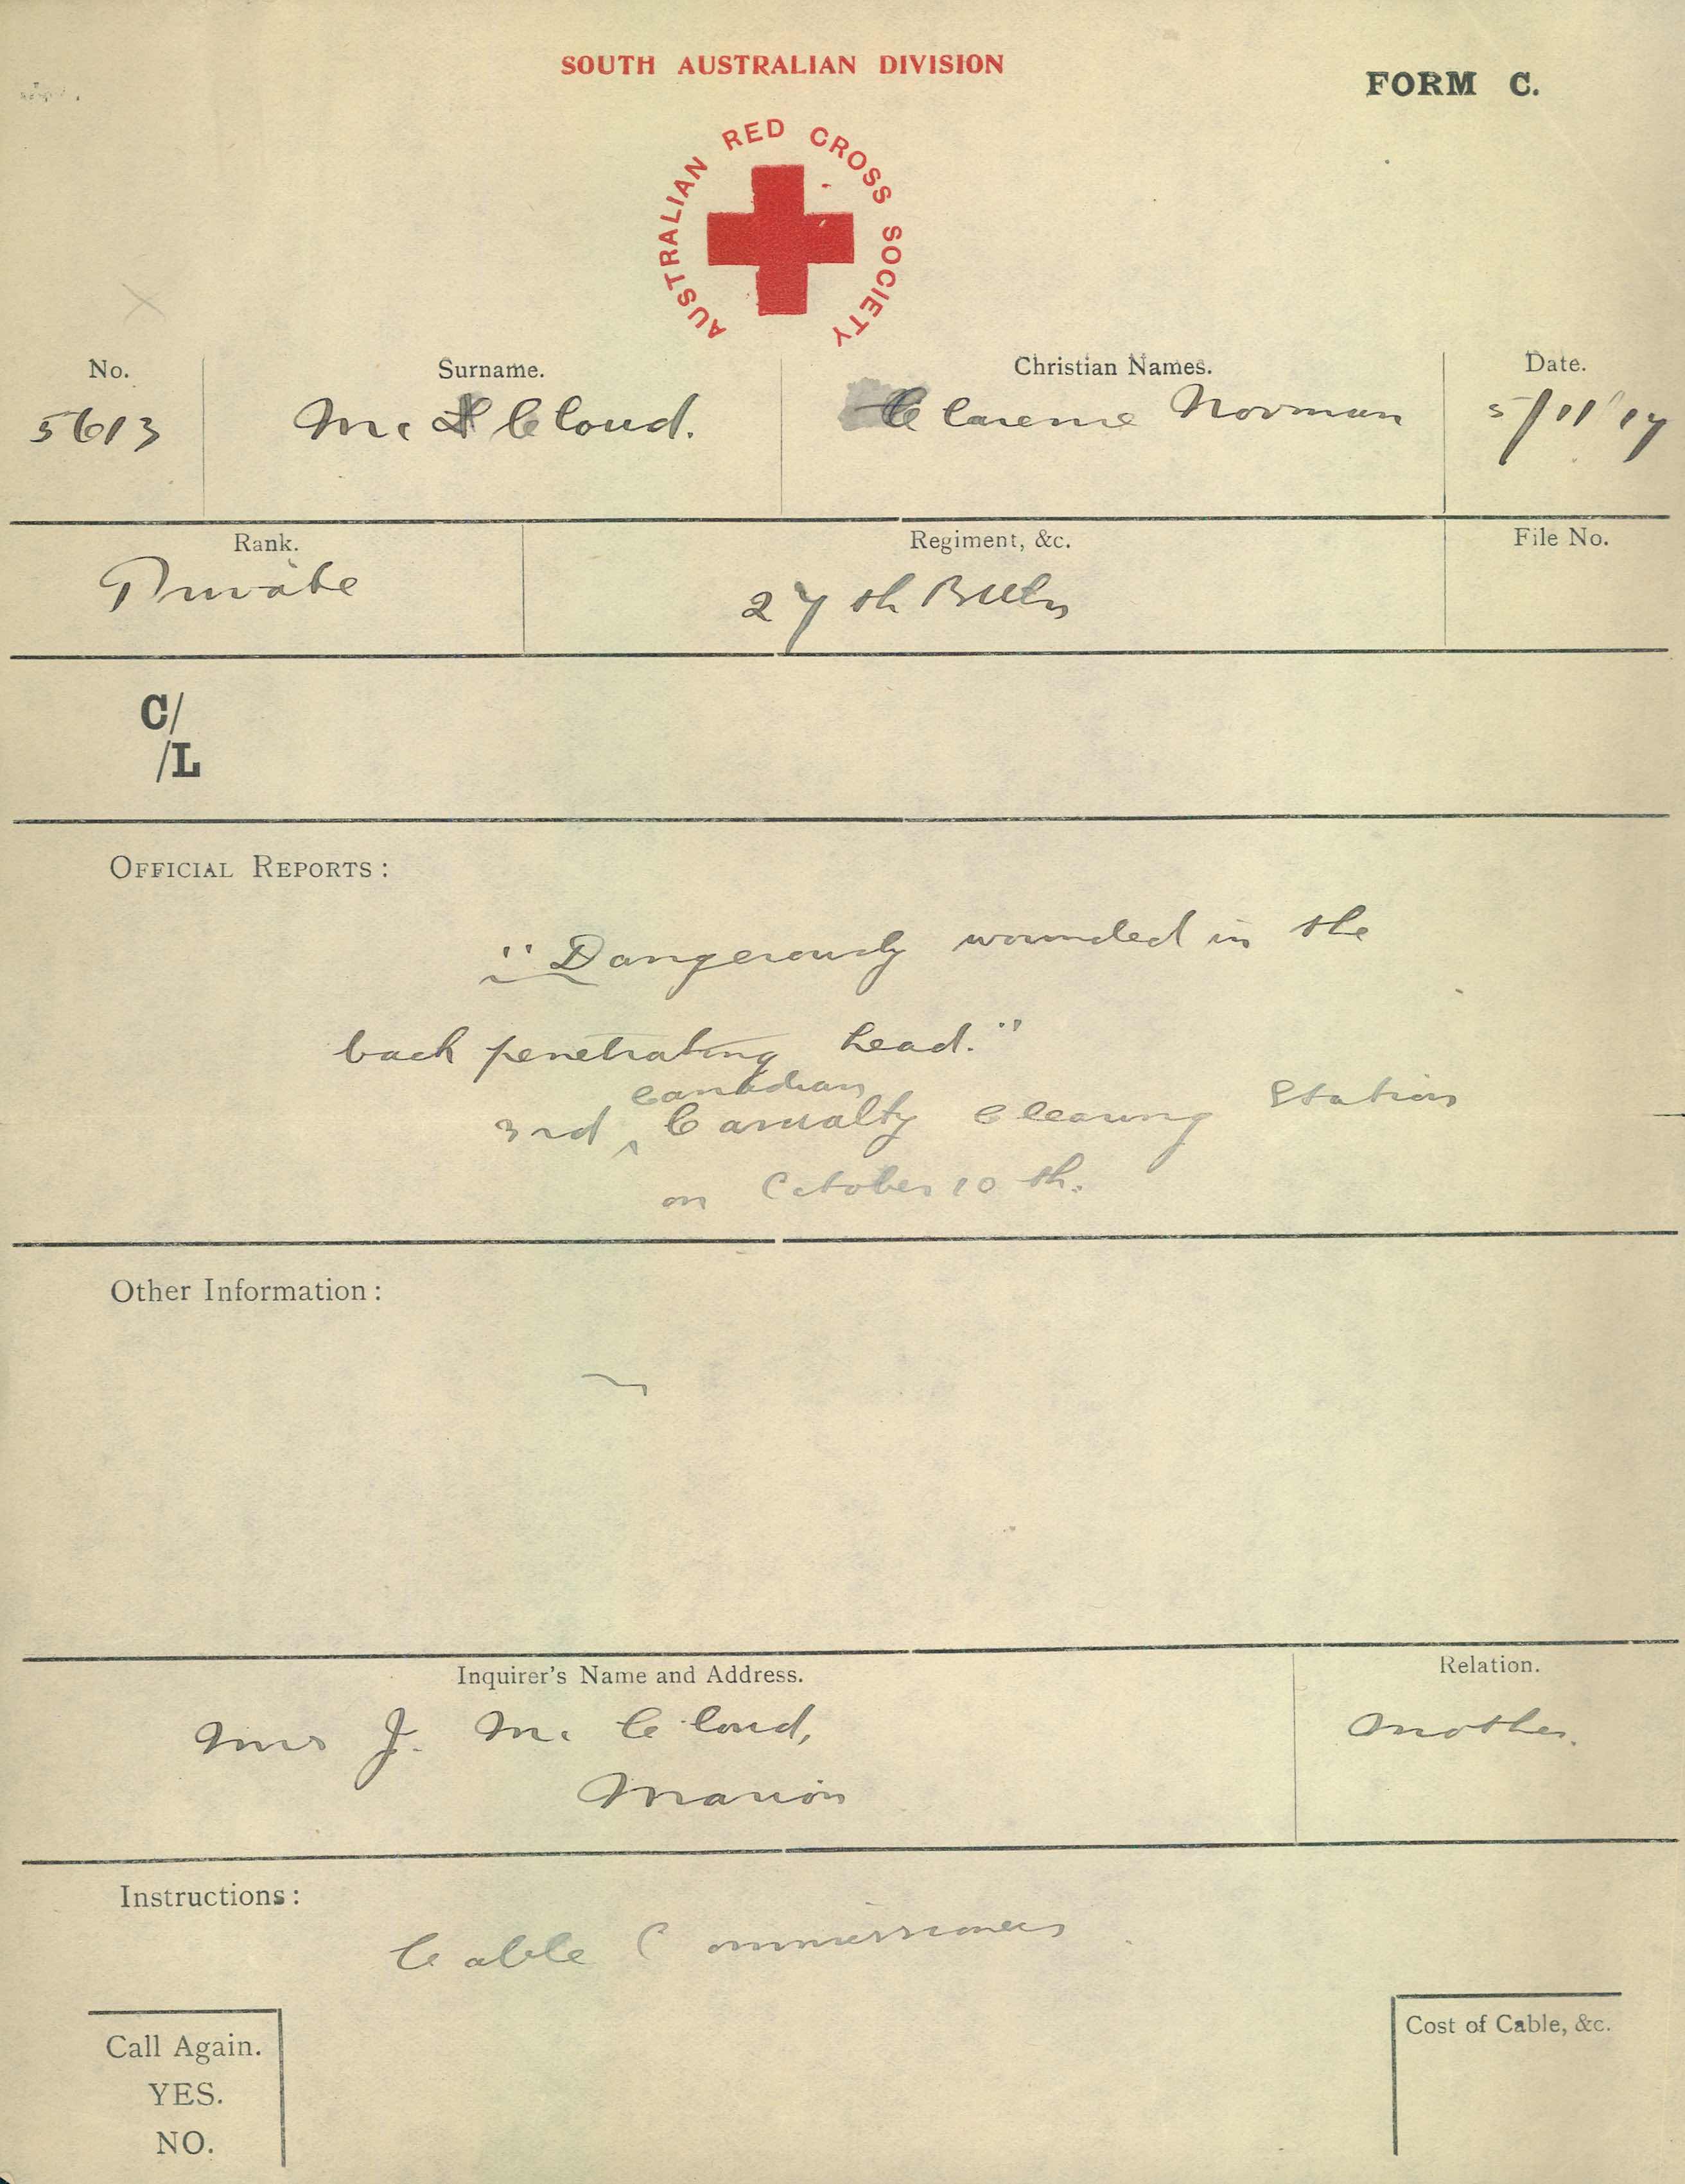 SOUTH AUSTRALIAN DIVISION
FORM C.
AUSTRALIAN RED CROSS SOCIETY
No. Surname. Christian Names. Date.
5613 Mc Cloud. Clarence Norman 5/11/17
Rank. Regiment, &c. File No.
Private 27th Batln
C/
/L
OFFICIAL REPORTS:
"Dangerously wounded in the
back penetrating head."
Canadian
3rd Casualty Clearing Station
on October 10th.
Other Information:
Inquirer's Name and Address. Relation.
Mrs J. Mc Cloud, Mother.
Marion
Instructions:
Cable Commissioners
Call Again.
YES.
NO.
Cost of Cable, &c.